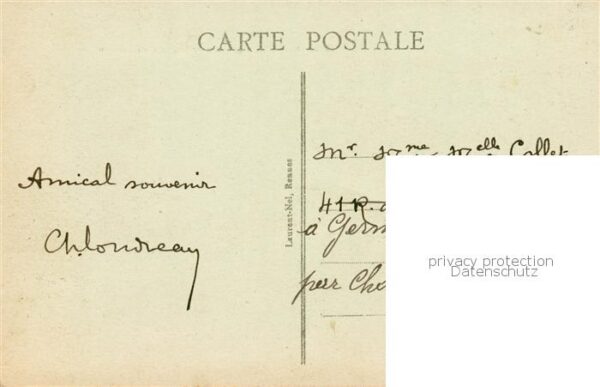 CARTE POSTALE
Amical souvenir
Ch. Loudreau
Laurent-Nel, Rennes
Mr Mme Melle Collet
41 R.
à Germ
par Cho
privacy protection
Datenschutz